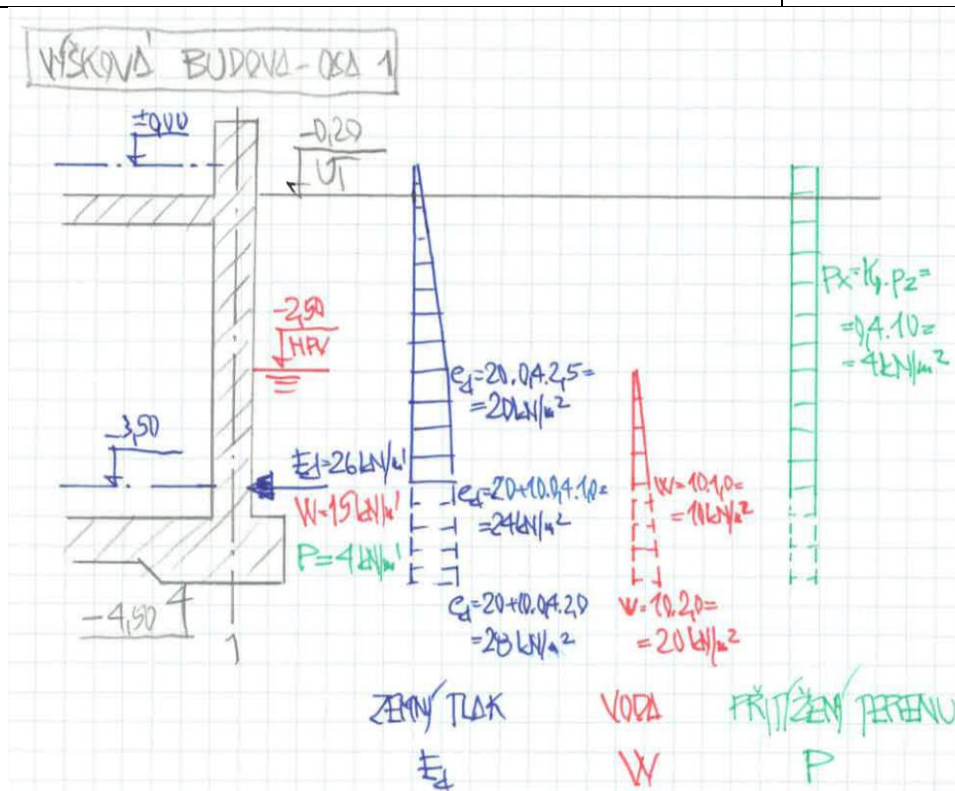 VÝŠKOVÁ BUDOVA - OSA 1
±0,00
-0,20
UT
-2,50
HPV
-3,50
-4,50
1
Ed=26kN/m'
W=15kN/m'
P=4kN/m'
ed=20.0,4.2,5=
=20kN/m²
ed=20+10.0,4.1,0=
=24kN/m²
ed=20+10.0,4.2,0
=28kN/m²
W=10.1,0=
=10kN/m²
W=10.2,0=
=20kN/m²
px=K0.pz=
=0,4.10=
=4kN/m²
ZEMNÍ TLAK
Ed
VODA
W
PŘITÍŽENÍ TERENU
P